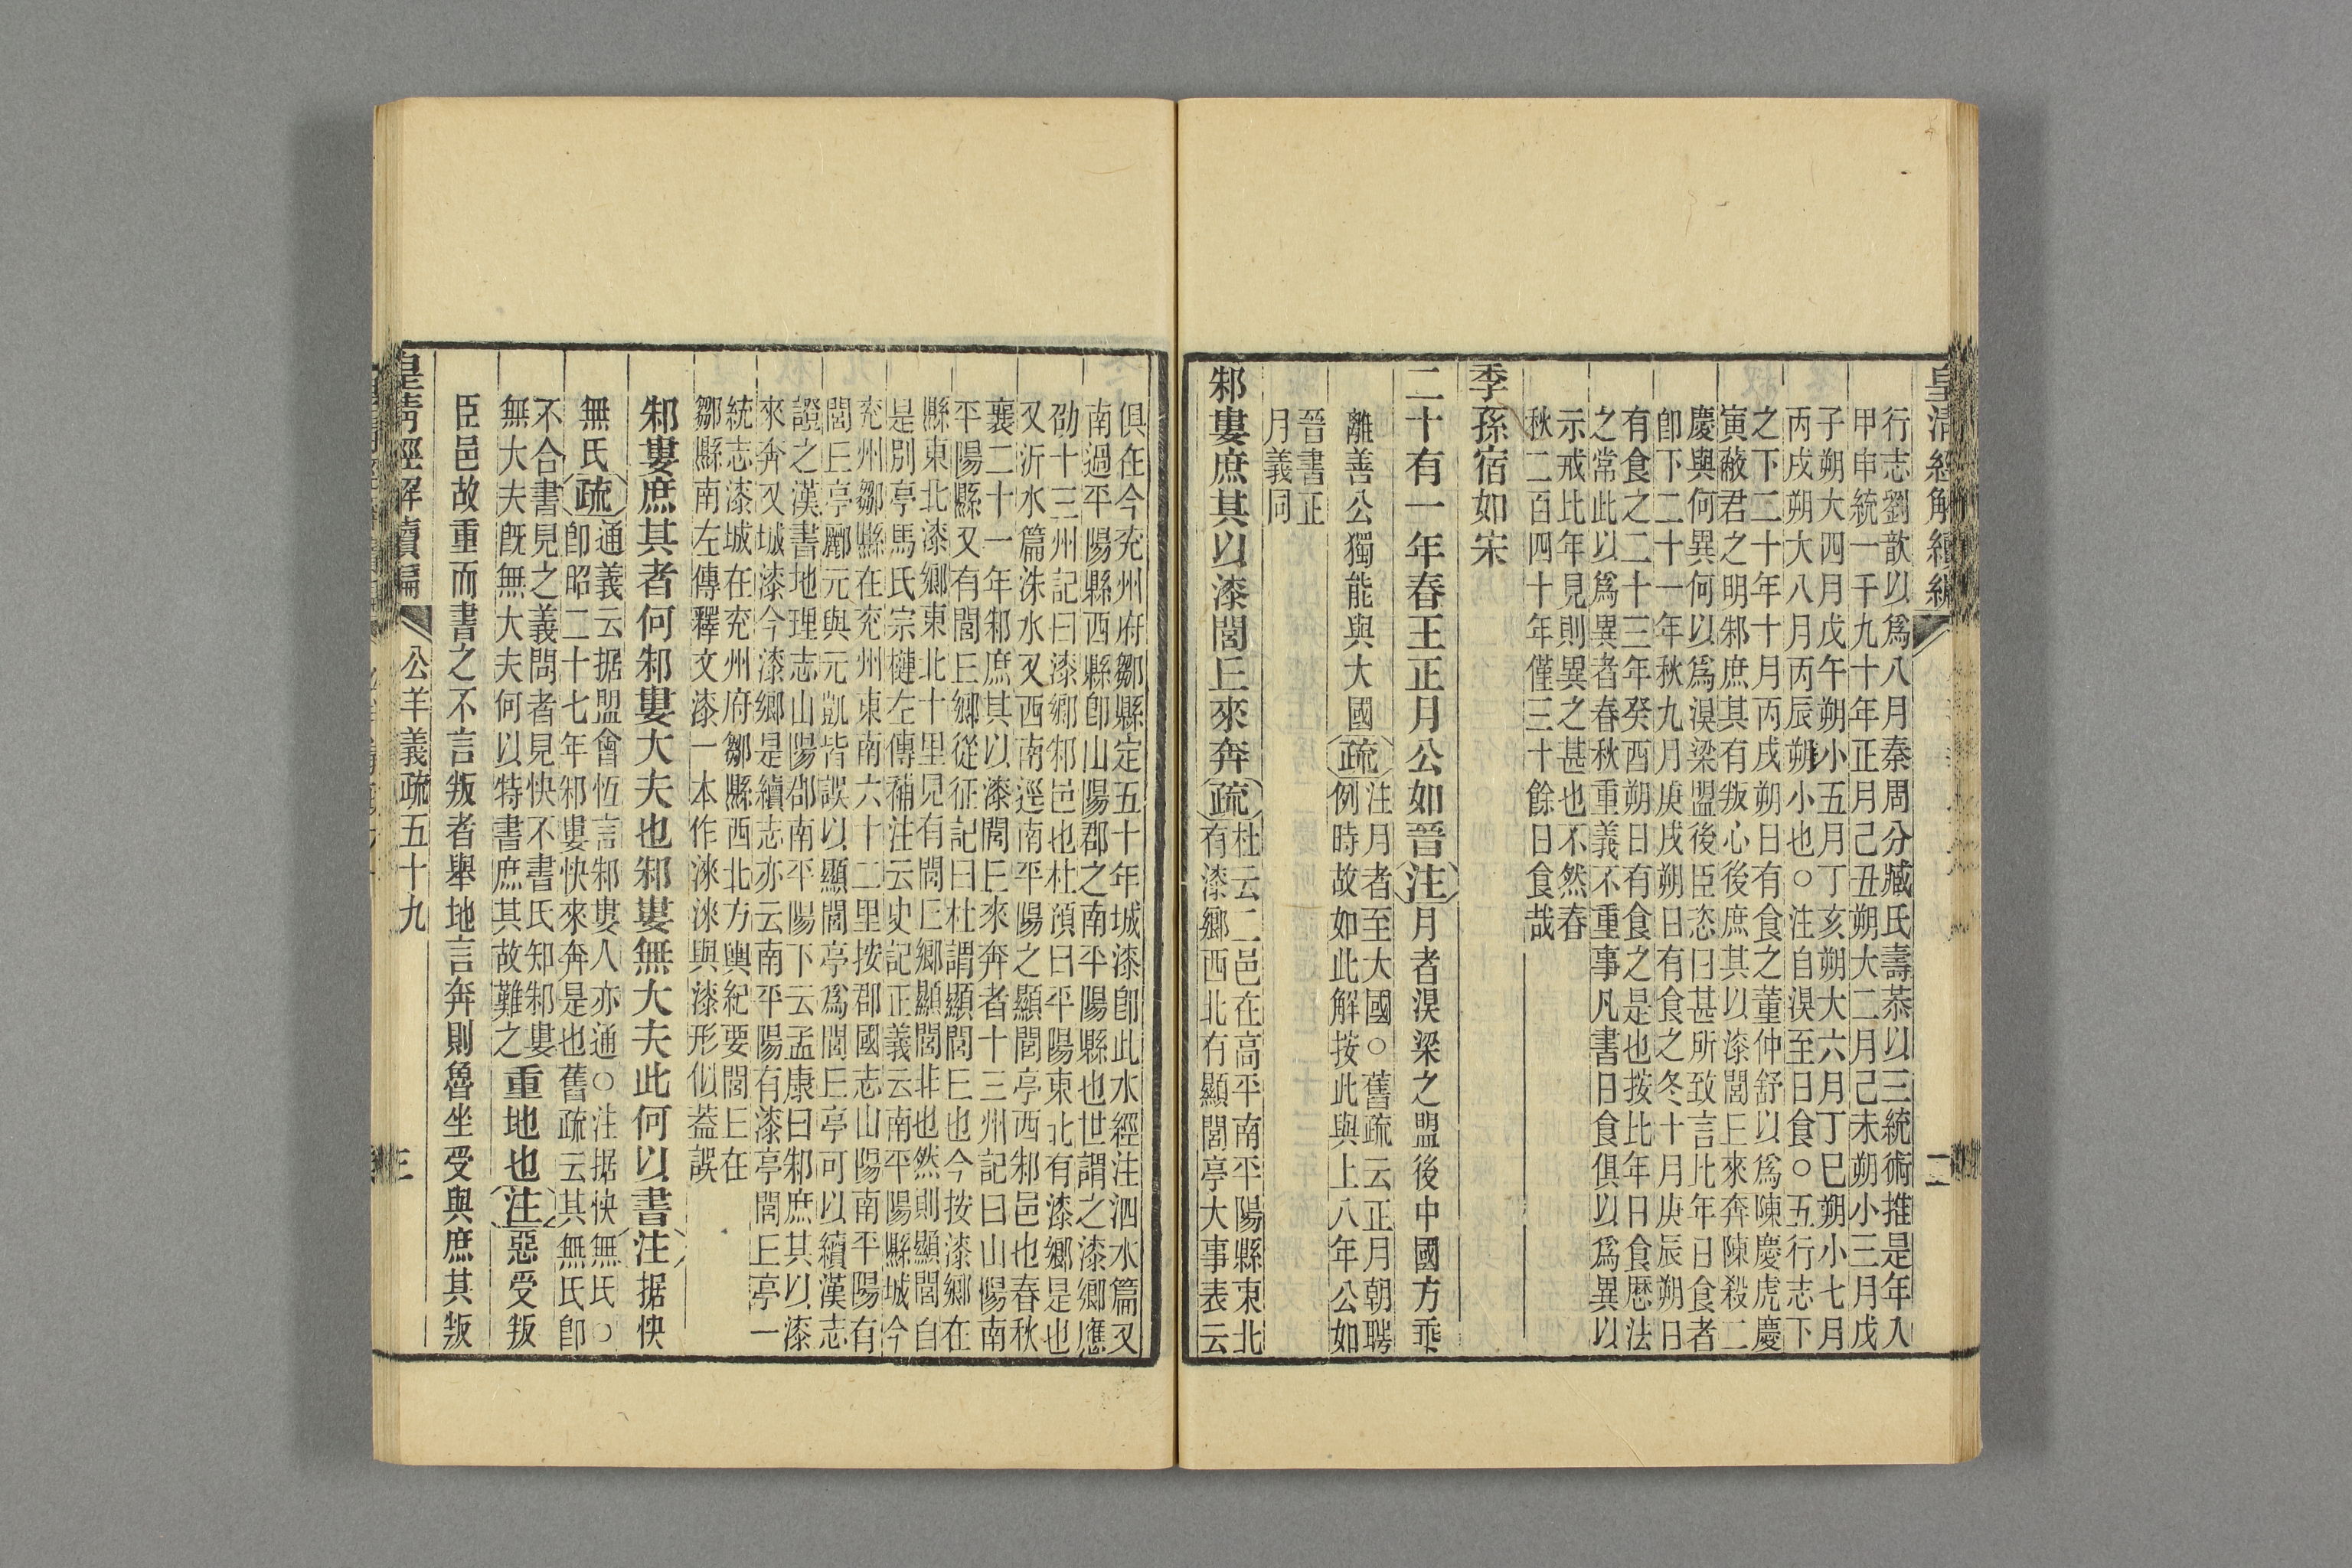 皇清經解續編
二
行志劉歆以爲八月秦周分臧氏壽恭以三統術推是年入
甲申統一千九十年正月己丑朔大二月己未朔小三月戊
子朔大四月戊午朔小五月丁亥朔大六月丁巳朔小七月
丙戌朔大八月丙辰朔小也○注自溴至日食○五行志下
之下二十年十月丙戌朔日有食之董仲舒以爲陳慶虎慶
寅蔽君之明邾庶其有叛心後庶其以漆閭丘來奔陳殺二
慶與何異何以爲溴梁盟後臣恣日甚所致言比年日食者
卽下二十一年秋九月庚戌朔日有食之冬十月庚辰朔日
有食之二十三年癸酉朔日有食之是也按比年日食厯法
之常此以爲異者春秋重義不重事凡書日食俱以爲異以
示戒比年見則異之甚也不然春
秋二百四十年僅三十餘日食哉
季孫宿如宋
二十有一年春王正月公如晉注月者溴梁之盟後中國方乖
離善公獨能與大國疏注月者至大國○舊疏云正月朝聘
例時故如此解按此與上八年公如
晉書正
月義同
邾婁庶其以漆閭丘來奔疏杜云二邑在高平南平陽縣東北
有漆鄉西北有顯閭亭大事表云
俱在今兗州府鄒縣定五十年城漆卽此水經注泗水篇又
南過平陽縣西縣卽山陽郡之南平陽縣也世謂之漆鄉應
劭十三州記曰漆鄉邾邑也杜預曰平陽東北有漆鄉是也
又沂水篇洙水又西南逕南平陽之顯閭亭西邾邑也春秋
襄二十一年邾庶其以漆閭丘來奔者十三州記曰山陽南
平陽縣又有閭丘鄉從征記曰杜謂顯閭丘也今按漆鄉在
縣東北漆鄉東北十里見有閭丘鄉顯閭非也然則顯閭自
是別亭馬氏宗槤左傳補注云史記正義云南平陽縣城今
兗州鄒縣在兗州東南六十二里按郡國志山陽南平陽有
閭丘亭酈元與元凱皆誤以顯閭亭爲閭丘亭可以續漢志
證之漢書地理志山陽郡南平陽下云孟康曰邾庶其以漆
來奔又城漆今漆鄉是續志亦云南平陽有漆亭閭丘亭一
統志漆城在兗州府鄒縣西北方輿紀要閭丘在
鄒縣南左傳釋文漆一本作淶淶與漆形似葢誤
邾婁庶其者何邾婁大夫也邾婁無大夫此何以書注据快
無氏疏通義云据盟會恆言邾婁人亦通○注据快無氏○
卽昭二十七年邾婁快來奔是也舊疏云其無氏卽
不合書見之義問者見快不書氏知邾婁
無大夫旣無大夫何以特書庶其故難之重地也注惡受叛
臣邑故重而書之不言叛者舉地言奔則魯坐受與庶其叛
皇清經解續編
公羊義疏五十九
三